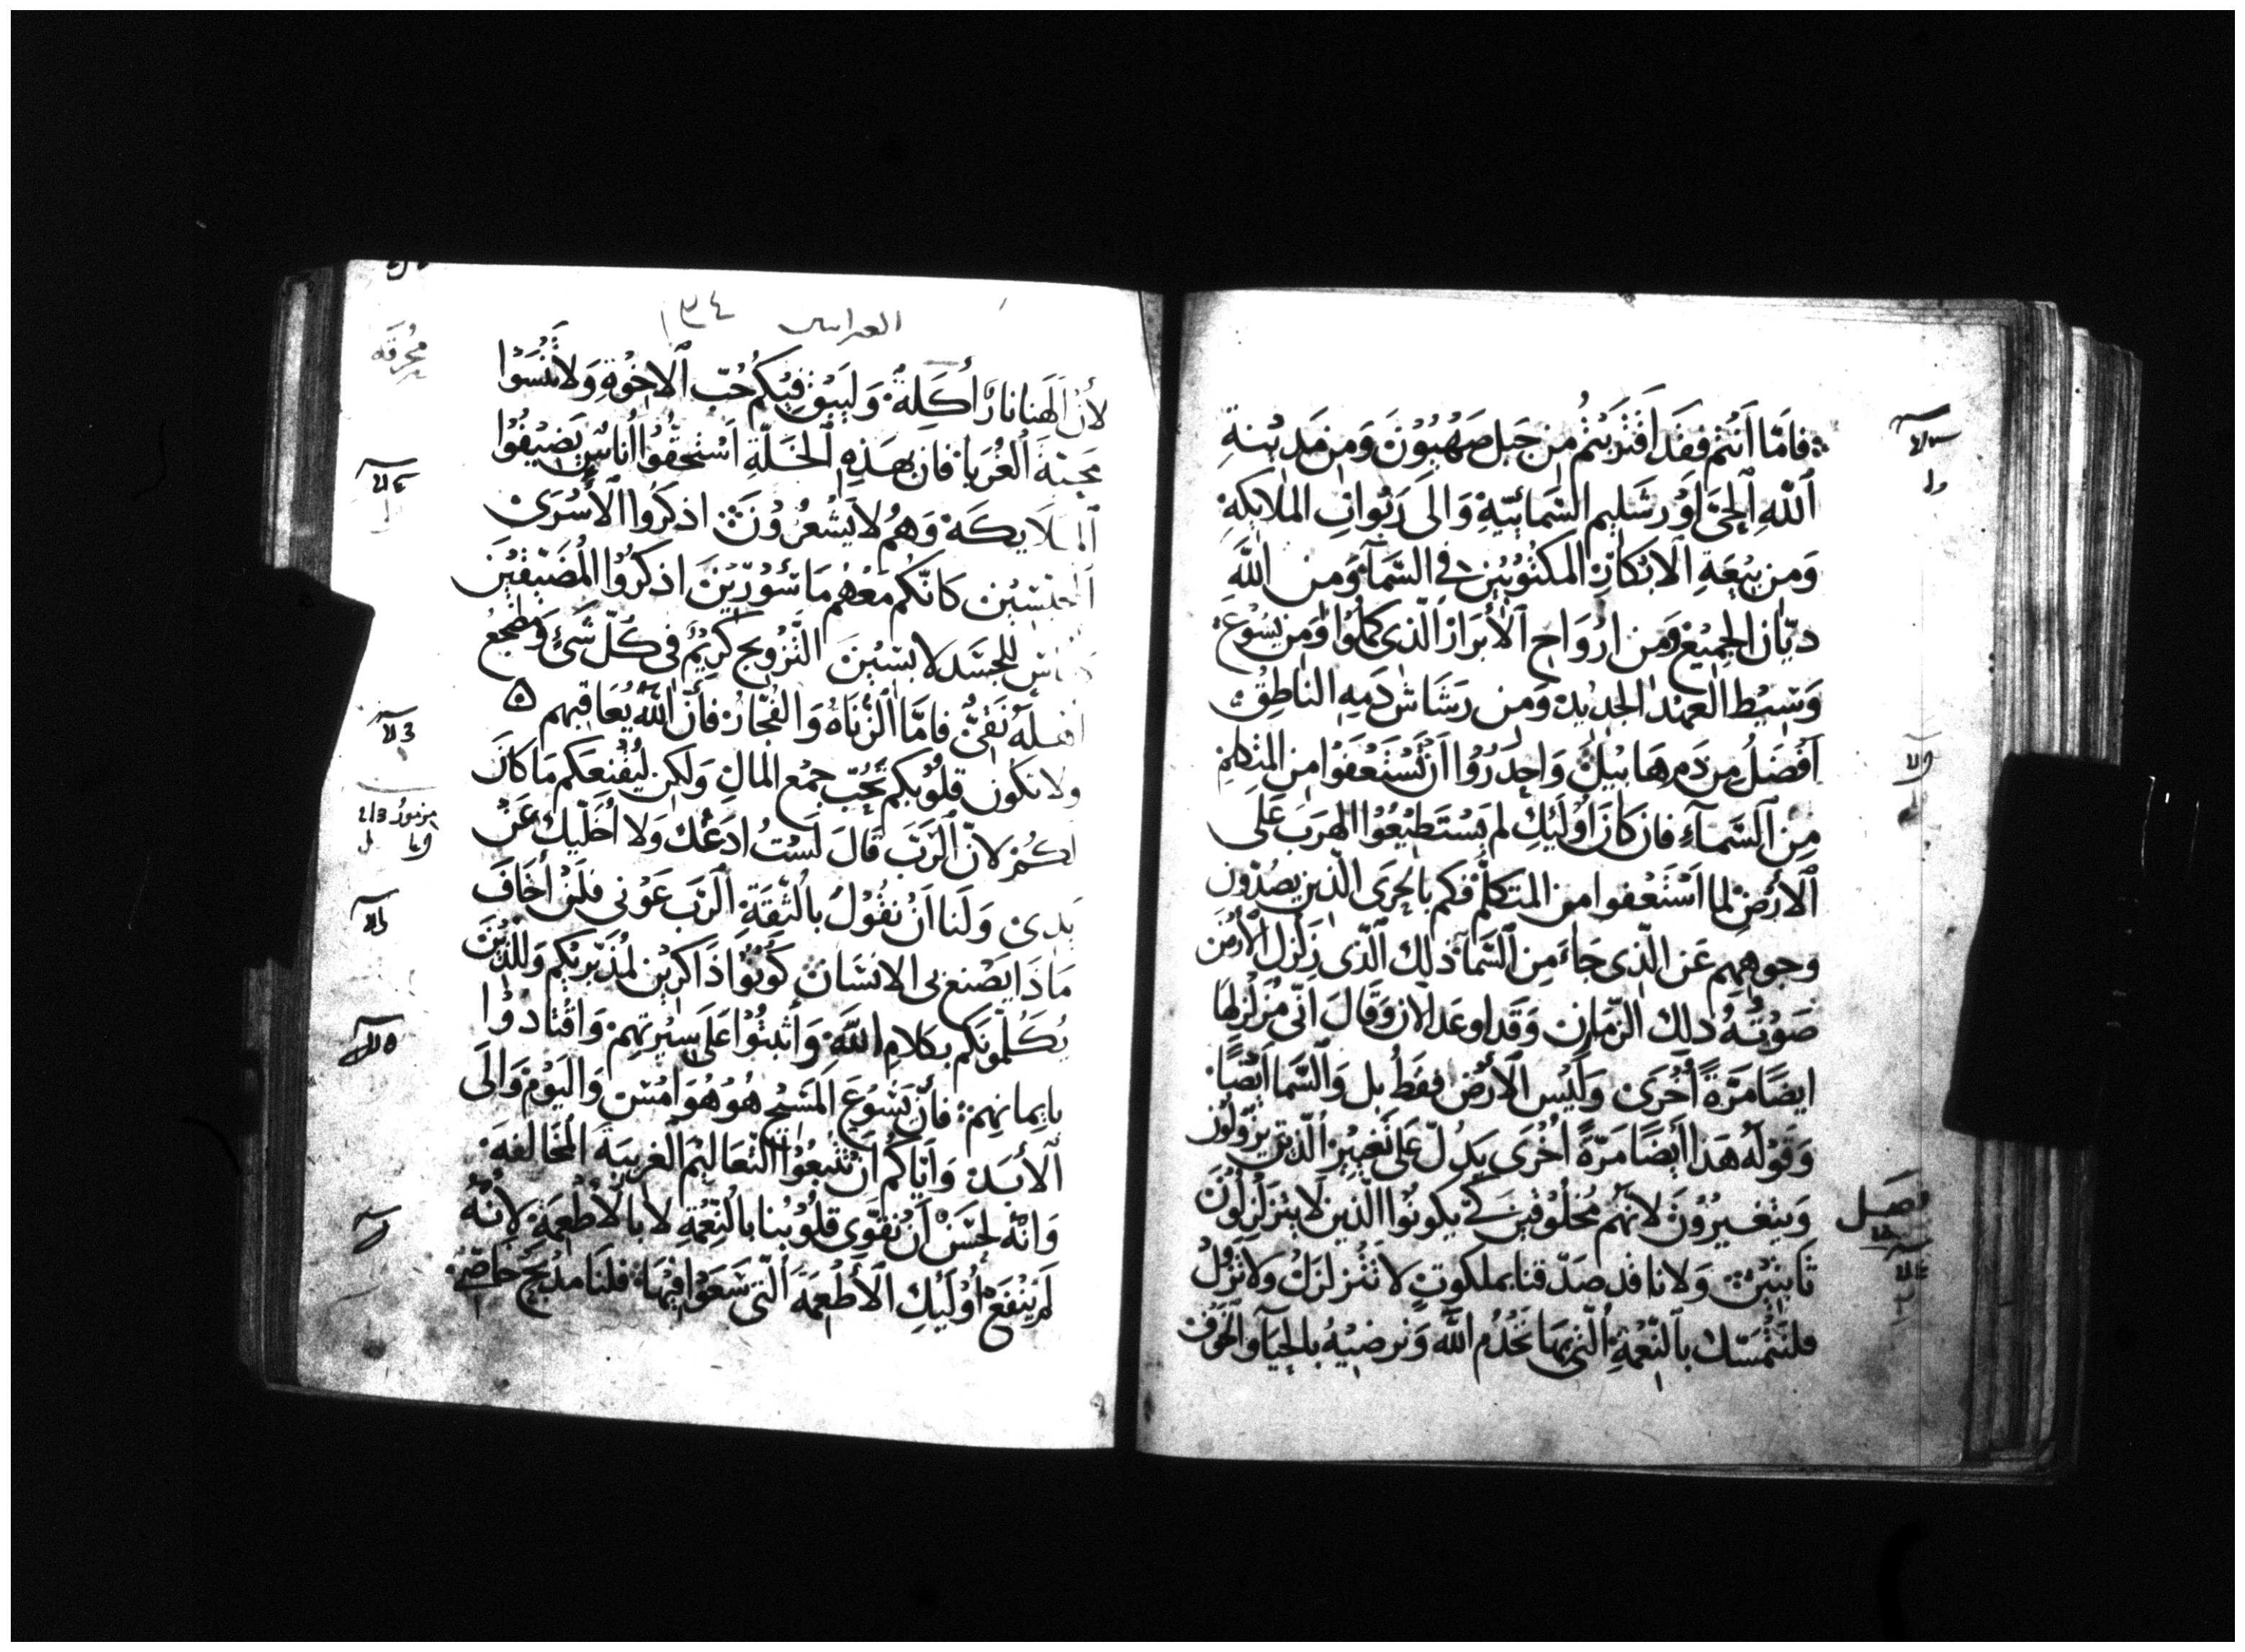 فامّا انتم فقد اقتربتم من جبل صهيون ومن مدينة
الله الحيّ اورشليم السمائيّة والى ربوات الملايكة
ومن بيعة الابكار المكتوبين في السماء ومن الله
ديّان الجميع ومن ارواح الأبرار الذي كملوا ومن يسوع
وسيط العهد الجديد ومن رشاش دمه الناطق
افضل من دم هابيل واحدروا ان تستعفوا من المتكلم
من السماء فان كان اوليك لم يستطيعوا الهرب على
الأرض لما استعفوا من المتكلّم فكم بالحرى الذين يصدّون
وجوههم عن الذي جاء من السما ذلك الذي زلزل الأرض
صوته دلك الزمان وقد اوعد الان وقال انّي مزلزلها
ايضا مرّة أخرى وليس الأرض فقط بل والسما ايضًا
وقوله هذا ايضا مرّة اخرى يدلّ على تغيير الذين يزولون
ويتغيرون لانهم مخلوقين كي يكونوا الذين لا يتزلزلون
ثابتين ولانا قد صدّقنا بملكوت لا تتزلزل ولا تزول
فلنتمسّك بالنعمة التي بها نخدم الله ونرضيه بالحيآ والخوف
فصل
العبراس ١٣٤
لأن الهنا نار أكلة وليبق فيكم حبّ الاخوة ولا تنسوا
محبة الغربا فان بهذه الخلّة استحقوا اناس يضيفوا
الملايكة وهم لا يشعرون اذكروا الأسرى
المحبسين كانّكم معهم ماسورين اذكروا المضيقين
للجسد لابسين التزويج كريم في كلّ شئ ومضجع
اهله نقيّ فامّا الزناه والفجّار فانّ الله يعاقبهم
ولا تكون قلوبكم تحبّ جمع المال ولكن ليقنعكم ما كان
لكم لانّ الربّ قال لست ادعك ولا اخلّيك عن
يدى ولنا ان نقول بالثقة الرب عوني فلن أخاف
ماذا يصنع بي الانسان كونوا ذاكرين لمدبّريكم وللذين
يكلّمونكم بكلام الله وأثبتوا على سيرتهم واقتادوا
بايمانهم فأنّ يسوع المسيح هو هو امس واليوم والى
الأبد واياكم ان تتبعوا التعاليم الغريبة المخالفة
وانّه لحسن أن نقوّي قلوبنا بالنعمة لا بالأطعمة لأنّه
لم ينفع اوليك الأطعمة التي سعوا فيها فلنا مذبح خاصّ
محرقه
مزمور